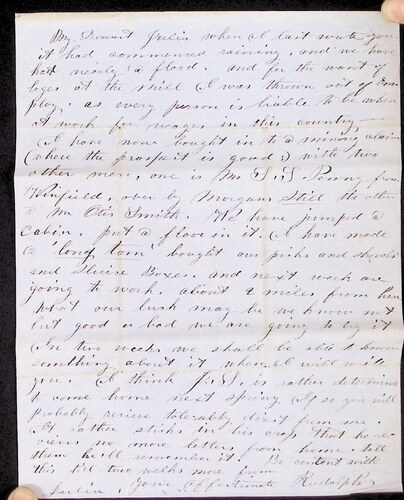 My Dearest Julia when I last wrote you
it had commenced raining, and we have
had nearly a flood. and for the want of
loges at the mill I was thrown out of Em
ploy. as every person is liable to be when
at work for wages in this country—
I have now bought in to a mining claim
(where the prospect is good;) with two
other men, one is Mr Penny from
Winfield, over by Morgans Still the other
a Mr Otis Smith. We have jumped a
Cabin, put a floor in it. I have made
a 'long tom' bought our picks and shovels
and Sluice Boxes. and next week are
going to work. about 2 miles from here
what our luck may be we know not
but good or bad we are going to try it
In two weeks we shall be able to know
something about it when I will write
you. I think is rather determined
to come home next spring if so you will
probably receive tolerably direct from me.
It rather sticks in his crop that he re-
ceives no more letters from home. tell
them he'll remember it. Be content with
this till two weeks more from
Julia, Your Affectionate Rudolph